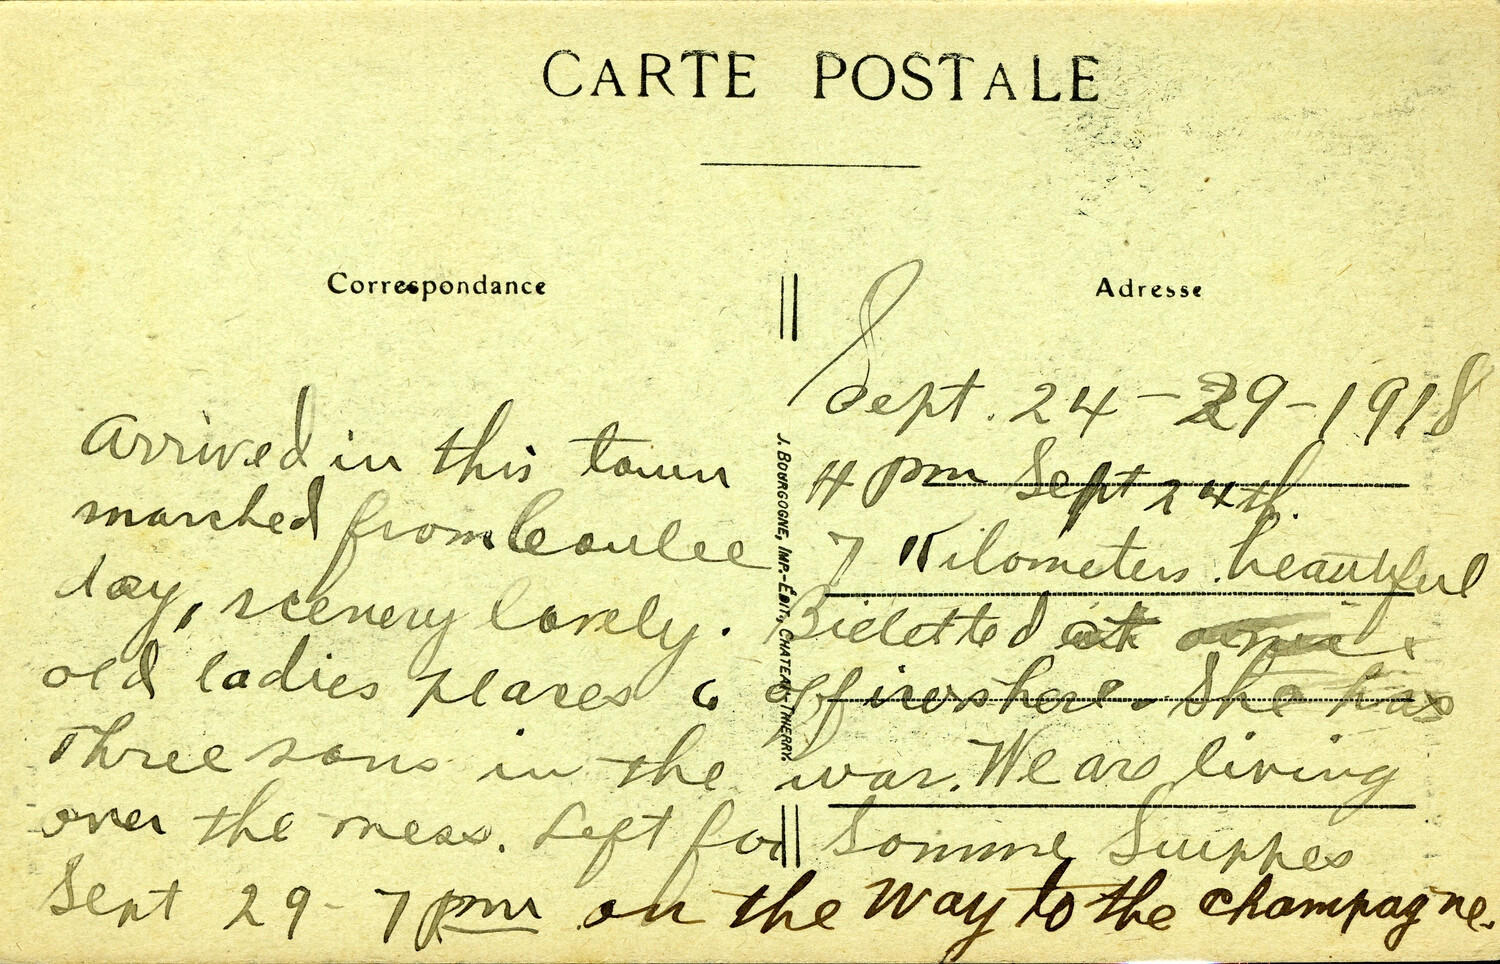 CARTE POSTALE
Correspondance
Adresse
Sept. 24 - 29 - 1918
Arrived in this town 4 pm Sept 24th.
marched from 7 Kilometers. beautiful
day, scenery lovely. Billetted at
old ladies places 6 officers here. She has
three sons in the war. We are living
over the mess. Left for Somme Suippes
Sept 29 - 7 pm on the way to the champagne.
J. BOURGOGNE, IMP.-ÉDIT, CHATEAU-THIERRY.